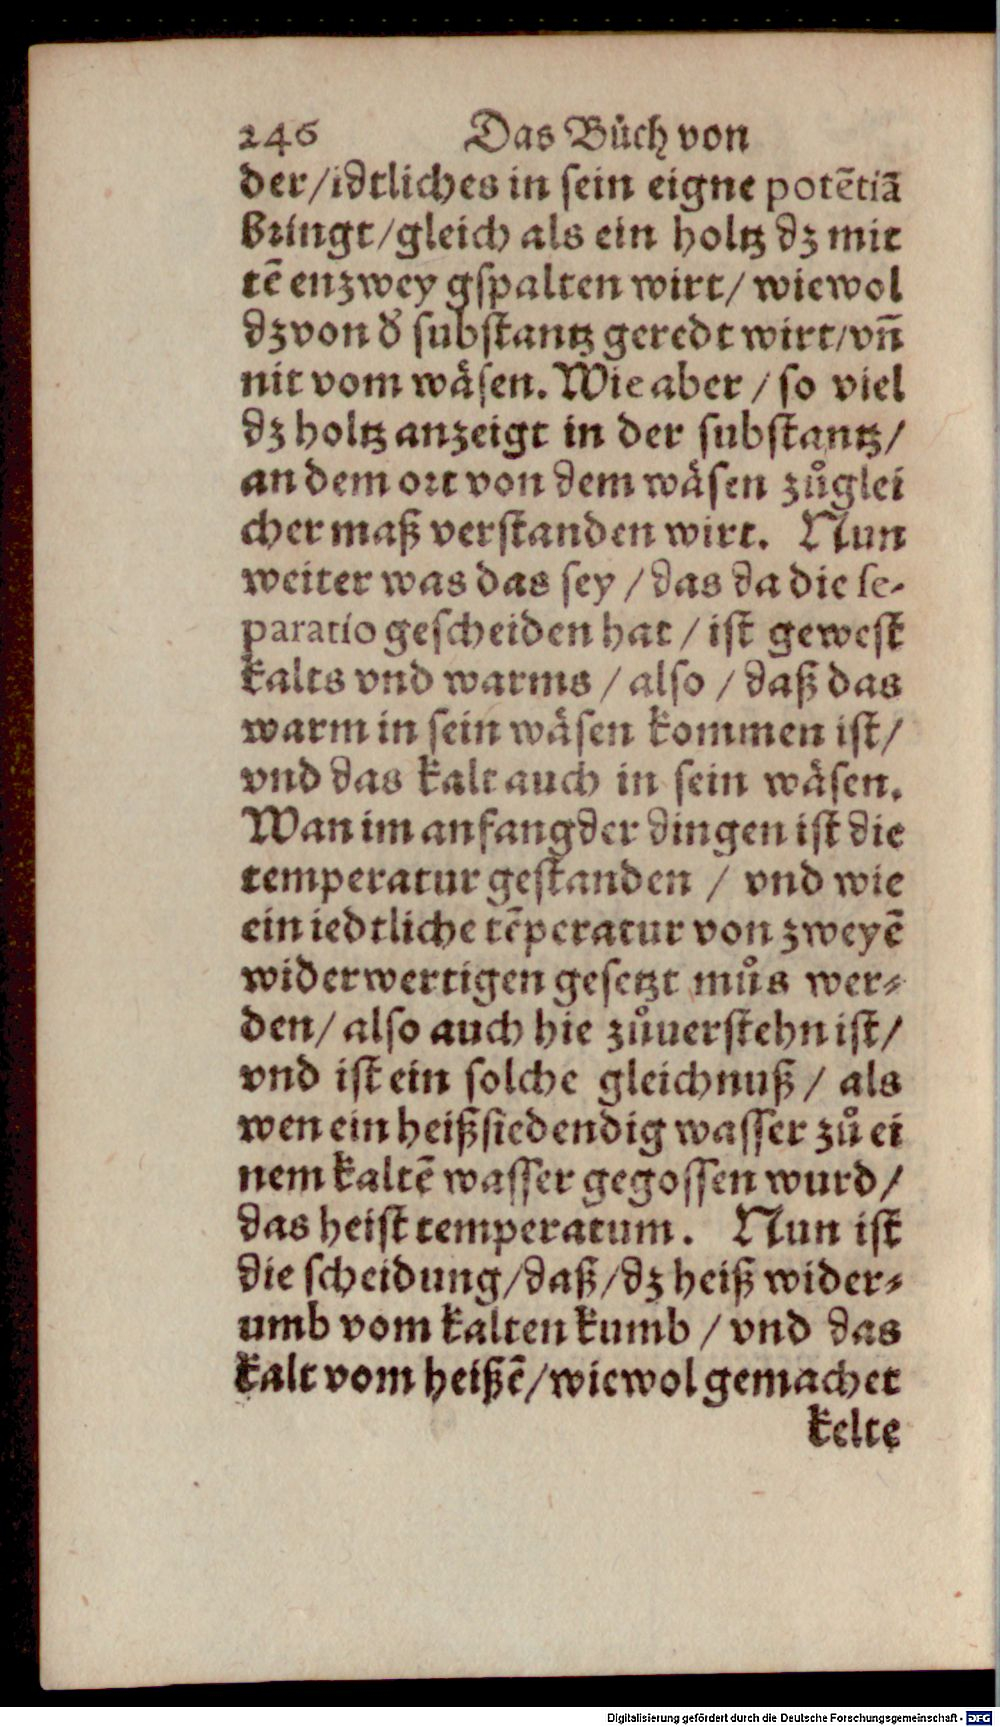 246 Das Bůch von
der/idtliches in sein eigne potẽtiã
bringt/gleich als ein holtz dz mit
tẽ enzwey gspalten wirt/ wiewol
dz von d̕ substantz geredt wirt/vñ
nit vom wäsen. Wie aber / so viel
dz holtz anzeigt in der substantz/
an dem ort von dem wäsen zůglei
cher maß verstanden wirt. Nun
weiter was das sey / das da die se-
paratio gescheiden hat / ist gewest
kalts vnd warms / also / daß das
warm in sein wäsen kommen ist/
vnd das kalt auch in sein wäsen.
Wan im anfang der dingen ist die
temperatur gestanden / vnd wie
ein iedtliche tẽperatur von zweyẽ
widerwertigen gesetzt můs wer-
den/ also auch hie zůuerstehn ist/
vnd ist ein solche gleichnuß / als
wen ein heißsiedendig wasser zů ei
nem kaltẽ wasser gegossen wurd/
das heist temperatum. Nun ist
die scheidung/daß/dz heiß wider-
umb vom kalten kumb / vnd das
kalt vom heißẽ/wiewol gemachet
kelte
Digitalisierung gefördert durch die Deutsche Forschungsgemeinschaft - DFG